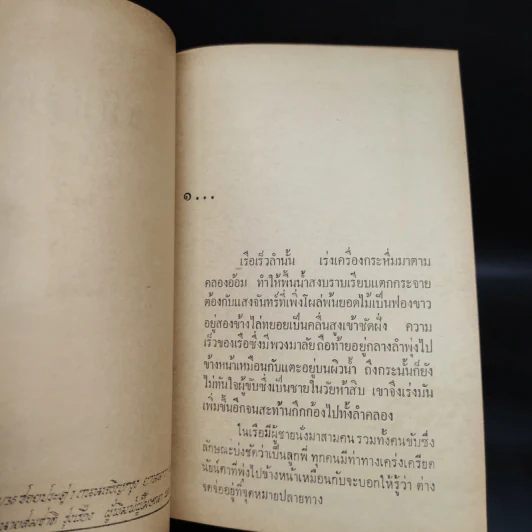 ๑...
เรือเร็วลำนั้น เร่งเครื่องกระหึ่มมาตาม
คลองอ้อม ทำให้พื้นน้ำสงบราบเรียบแตกกระจาย
ต้องกับแสงจันทร์ที่เพิ่งโผล่พ้นยอดไม้เป็นฟองขาว
อยู่สองข้างไล่ทยอยเป็นคลื่นสูงเข้าซัดฝั่ง ความ
เร็วของเรือซึ่งมีพวงมาลัยถือท้ายอยู่กลางลำพุ่งไป
ข้างหน้าเหมือนกับแตะอยู่บนผิวน้ำ ถึงกระนั้นก็ยัง
ไม่ทันใจผู้ขับซึ่งเป็นชายในวัยห้าสิบ เขาจึงเร่งมัน
เพิ่มขึ้นอีกจนสะท้านกึกก้องไปทั้งลำคลอง
ในเรือมีผู้ชายนั่งมาสามคน รวมทั้งคนขับซึ่ง
ลักษณะบ่งชัดว่าเป็นลูกพี่ ทุกคนมีท่าทางเคร่งเครียด
นัยน์ตาที่พุ่งไปข้างหน้าเหมือนกับจะบอกให้รู้ว่า ต่าง
จดจ่ออยู่ที่จุดหมายปลายทาง